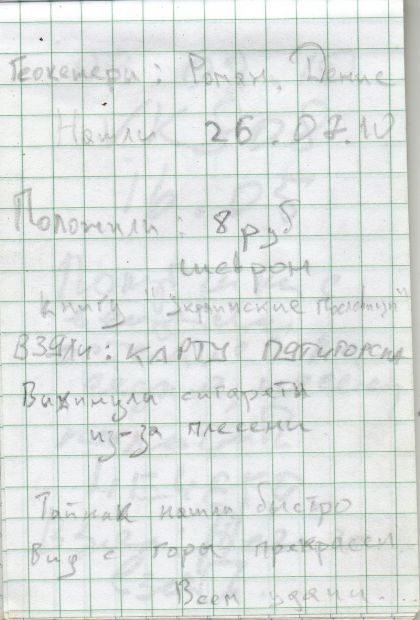 Геокешери: Роман, Денис
Нашли 26.07.10
Положили: 8 руб
шеврон
книгу "Украинские пословицы"
ВЗЯЛИ: КАРТУ ПЯТИГОРСКА
Выкинули сигареты
из-за плесени
Тайник нашли быстро
Вид с горы прекрасен
Всем удачи...